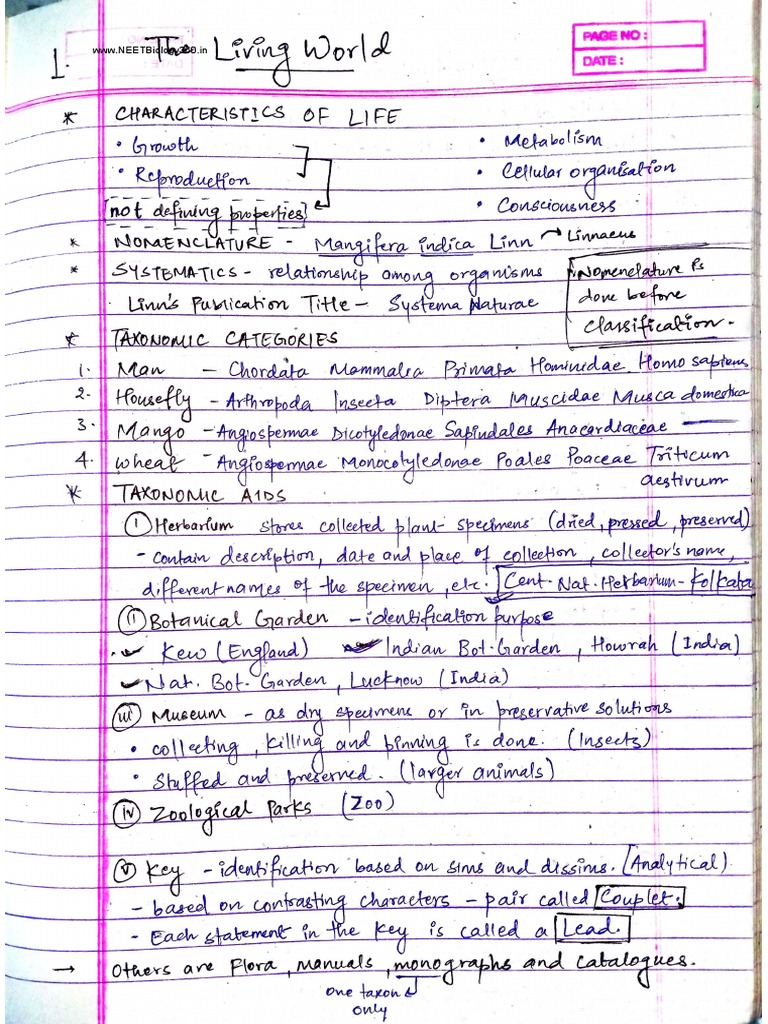 www.NEETBiology360.in
1. The Living World
PAGE NO :
DATE :
* CHARACTERISTICS OF LIFE
• Growth • Metabolism
• Reproduction • Cellular organisation
[not defining properties] • Consciousness
* NOMENCLATURE - Mangifera indica Linn → Linnaeus
* SYSTEMATICS - relationship among organisms
Linn's Publication Title - Systema Naturae
Nomenclature is
done before
classification.
* TAXONOMIC CATEGORIES
1. Man - Chordata Mammalia Primata Hominidae Homo sapiens
2. Housefly - Arthropoda Insecta Diptera Muscidae Musca domestica
3. Mango - Angiospermae Dicotyledonae Sapindales Anacardiaceae —
4. wheat - Angiospermae Monocotyledonae Poales Poaceae Triticum
aestivum
* TAXONOMIC AIDS
(i) Herbarium stores collected plant specimens (dried, pressed, preserved)
- contain description, date and place of collection, collector's name,
different names of the specimen, etc. Cent. Nat. Herbarium - Kolkata
(ii) Botanical Garden - identification purpose
✓ Kew (England) Indian Bot. Garden, Howrah (India)
✓ Nat. Bot. Garden, Lucknow (India)
(iii) Museum - as dry specimens or in preservative solutions
• collecting, killing and pinning is done. (Insects)
• Stuffed and preserved. (larger animals)
(iv) Zoological Parks (Zoo)
(v) Key - identification based on sims and dissims. (Analytical)
- based on contrasting characters - pair called Couplet.
- Each statement in the key is called a Lead.
→ Others are Flora, manuals, monographs and catalogues.
one taxon
only